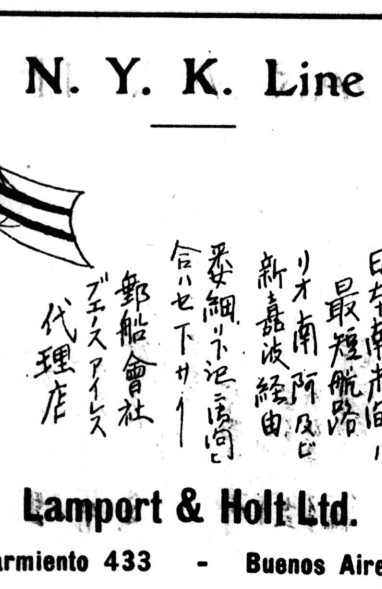 N. Y. K. Line
日本南米間ノ
最短航路
リオ南阿及ビ
新嘉波経由
細ハ下記ニ御問ヒ
合ハセ下サイ
郵船會社
ブエノスアイレス
代理店
Lamport & Holt Ltd.
armiento 433 - Buenos Aire